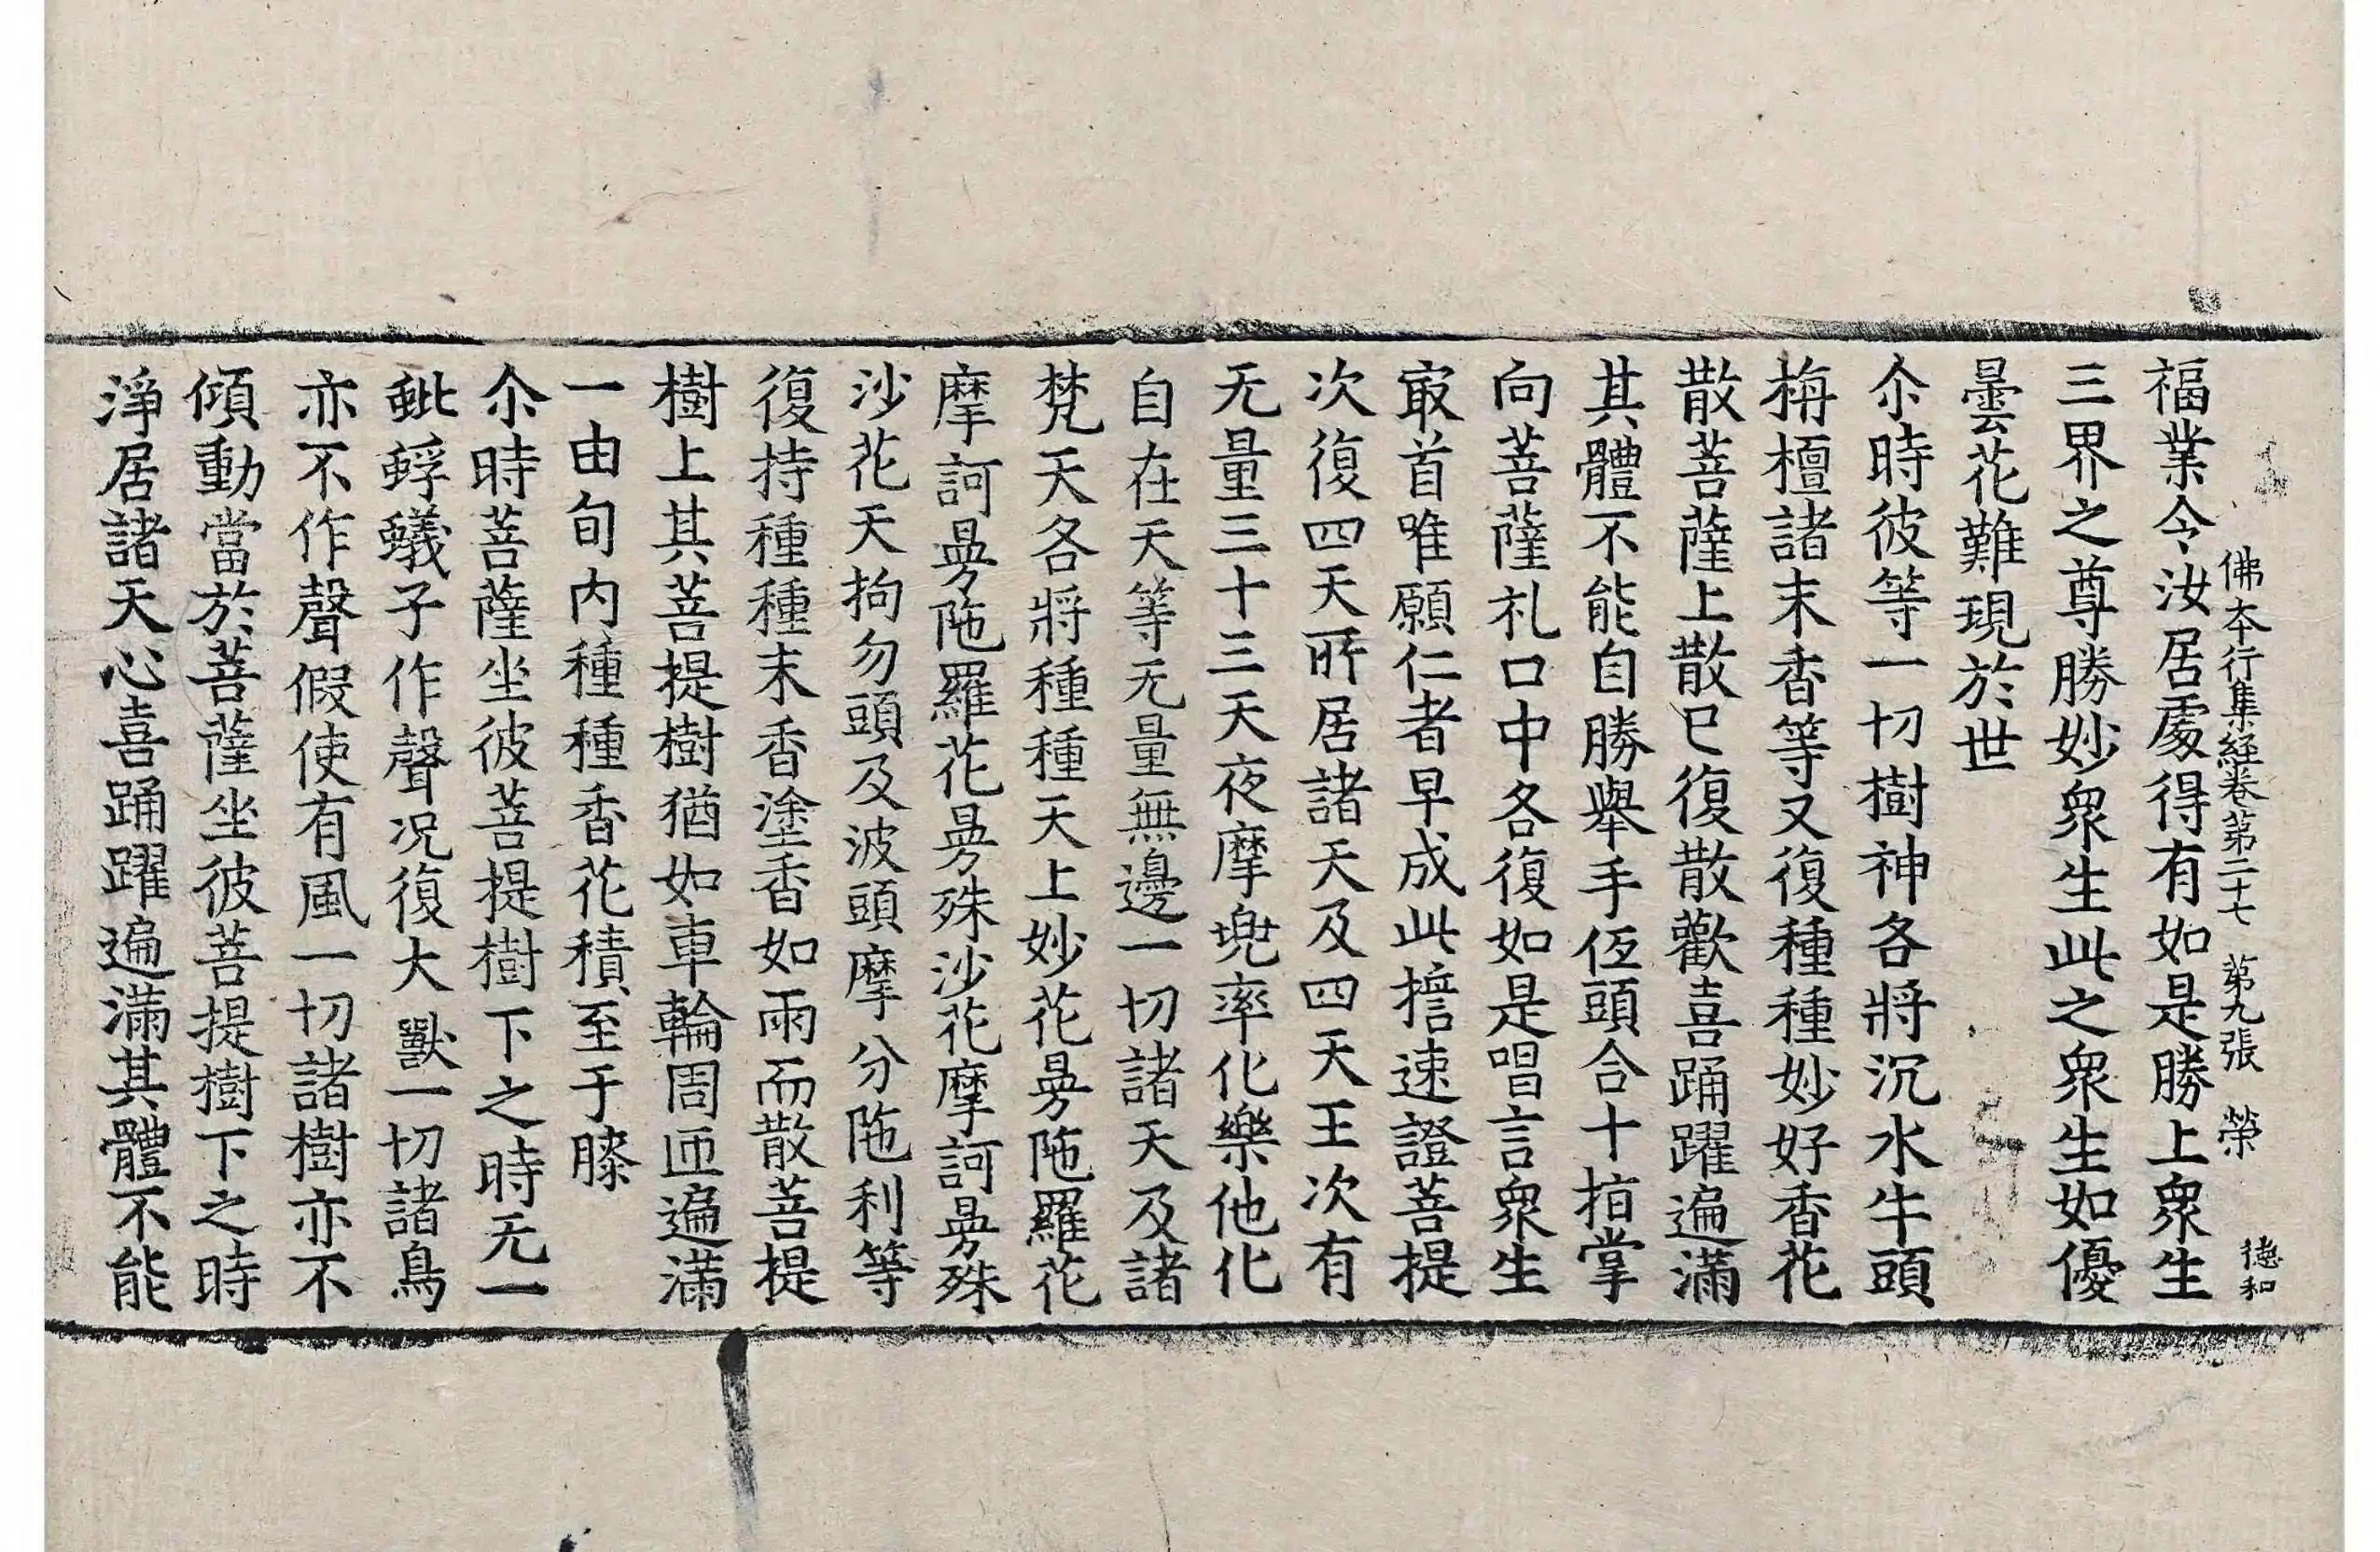 佛本行集経卷第二十七 第九張 榮 德和
福業今汝居處得有如是勝上衆生
三界之尊勝妙衆生此之衆生如優
曇花難現於世
尒時彼等一切樹神各將沉水牛頭
栴檀諸末香等又復種種妙好香花
散菩薩上散已復散歡喜踊躍遍滿
其體不能自勝舉手伍頭合十指掌
向菩薩礼口中各復如是唱言衆生
㝡首唯願仁者早成此擔速證菩提
次復四天所居諸天及四天王次有
无量三十三天夜摩兜率化樂他化
自在天等无量無邊一切諸天及諸
梵天各將種種天上妙花曼陁羅花
摩訶曼陁羅花曼殊沙花摩訶曼殊
沙花天拘勿頭及波頭摩分陁利等
復持種種末香塗香如雨而散菩提
樹上其菩提樹猶如車輪周匝遍滿
一由旬内種種香花積至于膝
尒時菩薩坐彼菩提樹下之時无一
蚍蜉蟻子作聲况復大獸一切諸鳥
亦不作聲假使有風一切諸樹亦不
傾動當於菩薩坐彼菩提樹下之時
淨居諸天心喜踊躍遍滿其體不能